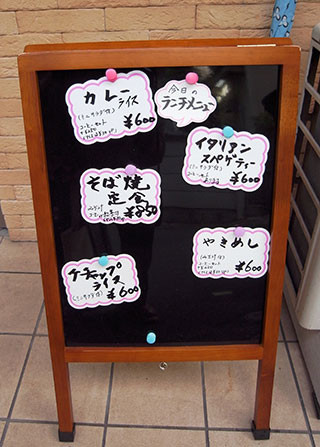 今日の
ランチメニュー
カレー
ライス
(ミニサラダ付)
¥600
イタリアン
スパゲティー
(ミニサラダ付)
¥600
そば焼
定食
¥850
やきめし
(みそ汁付)
¥600
ケチャップ
ライス
(ミニサラダ付)
¥600